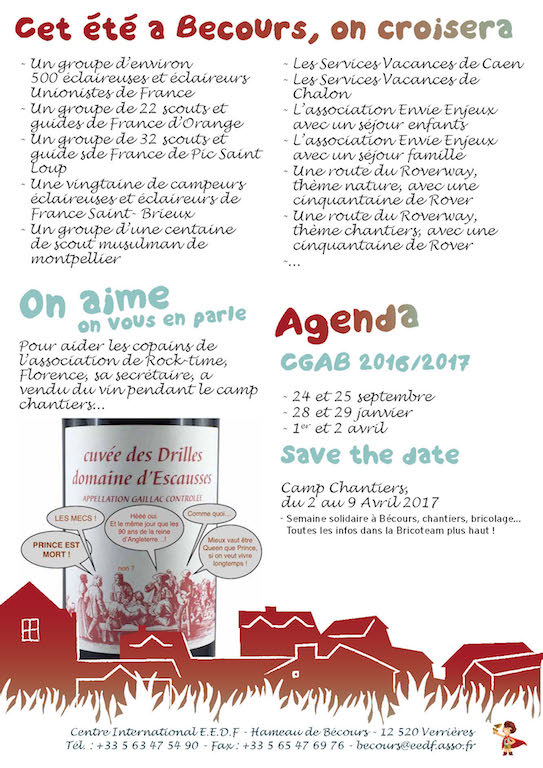 Cet été a Becours, on croisera
- Un groupe d'environ
500 éclaireuses et éclaireurs
Unionistes de France
- Un groupe de 22 scouts et
guides de France d'Orange
- Un groupe de 32 scouts et
guide sde France de Pic Saint
Loup
- Une vingtaine de campeurs
éclaireuses et éclaireurs de
France Saint- Brieux
- Un groupe d'une centaine
de scout musulman de
montpellier
- Les Services Vacances de Caen
- Les Services Vacances de
Chalon
- L'association Envie Enjeux
avec un séjour enfants
- L'association Envie Enjeux
avec un séjour famille
- Une route du Roverway,
thème nature, avec une
cinquantaine de Rover
- Une route du Roverway,
thème chantiers, avec une
cinquantaine de Rover
-...
On aime
on vous en parle
Pour aider les copains de
l'association de Rock-time,
Florence, sa secrétaire, a
vendu du vin pendant le camp
chantiers...
cuvée des Drilles
domaine d'Escausses
APPELLATION GAILLAC CONTROLEE
LES MECS !
Hééé oui.
Et le même jour que les
90 ans de la reine
d'Angleterre...!
Comme quoi...
PRINCE EST
MORT !
non ?
Mieux vaut être
Queen que Prince,
si on veut vivre
longtemps !
Agenda
CGAB 2016/2017
- 24 et 25 septembre
- 28 et 29 janvier
- 1er et 2 avril
Save the date
Camp Chantiers,
du 2 au 9 Avril 2017
- Semaine solidaire à Bécours, chantiers, bricolage...
Toutes les infos dans la Bricoteam plus haut !
Centre International E.E.D.F - Hameau de Bécours - 12 520 Verrières
Tél. : +33 5 63 47 54 90 - Fax : +33 5 65 47 69 76 - becours@eedf.asso.fr